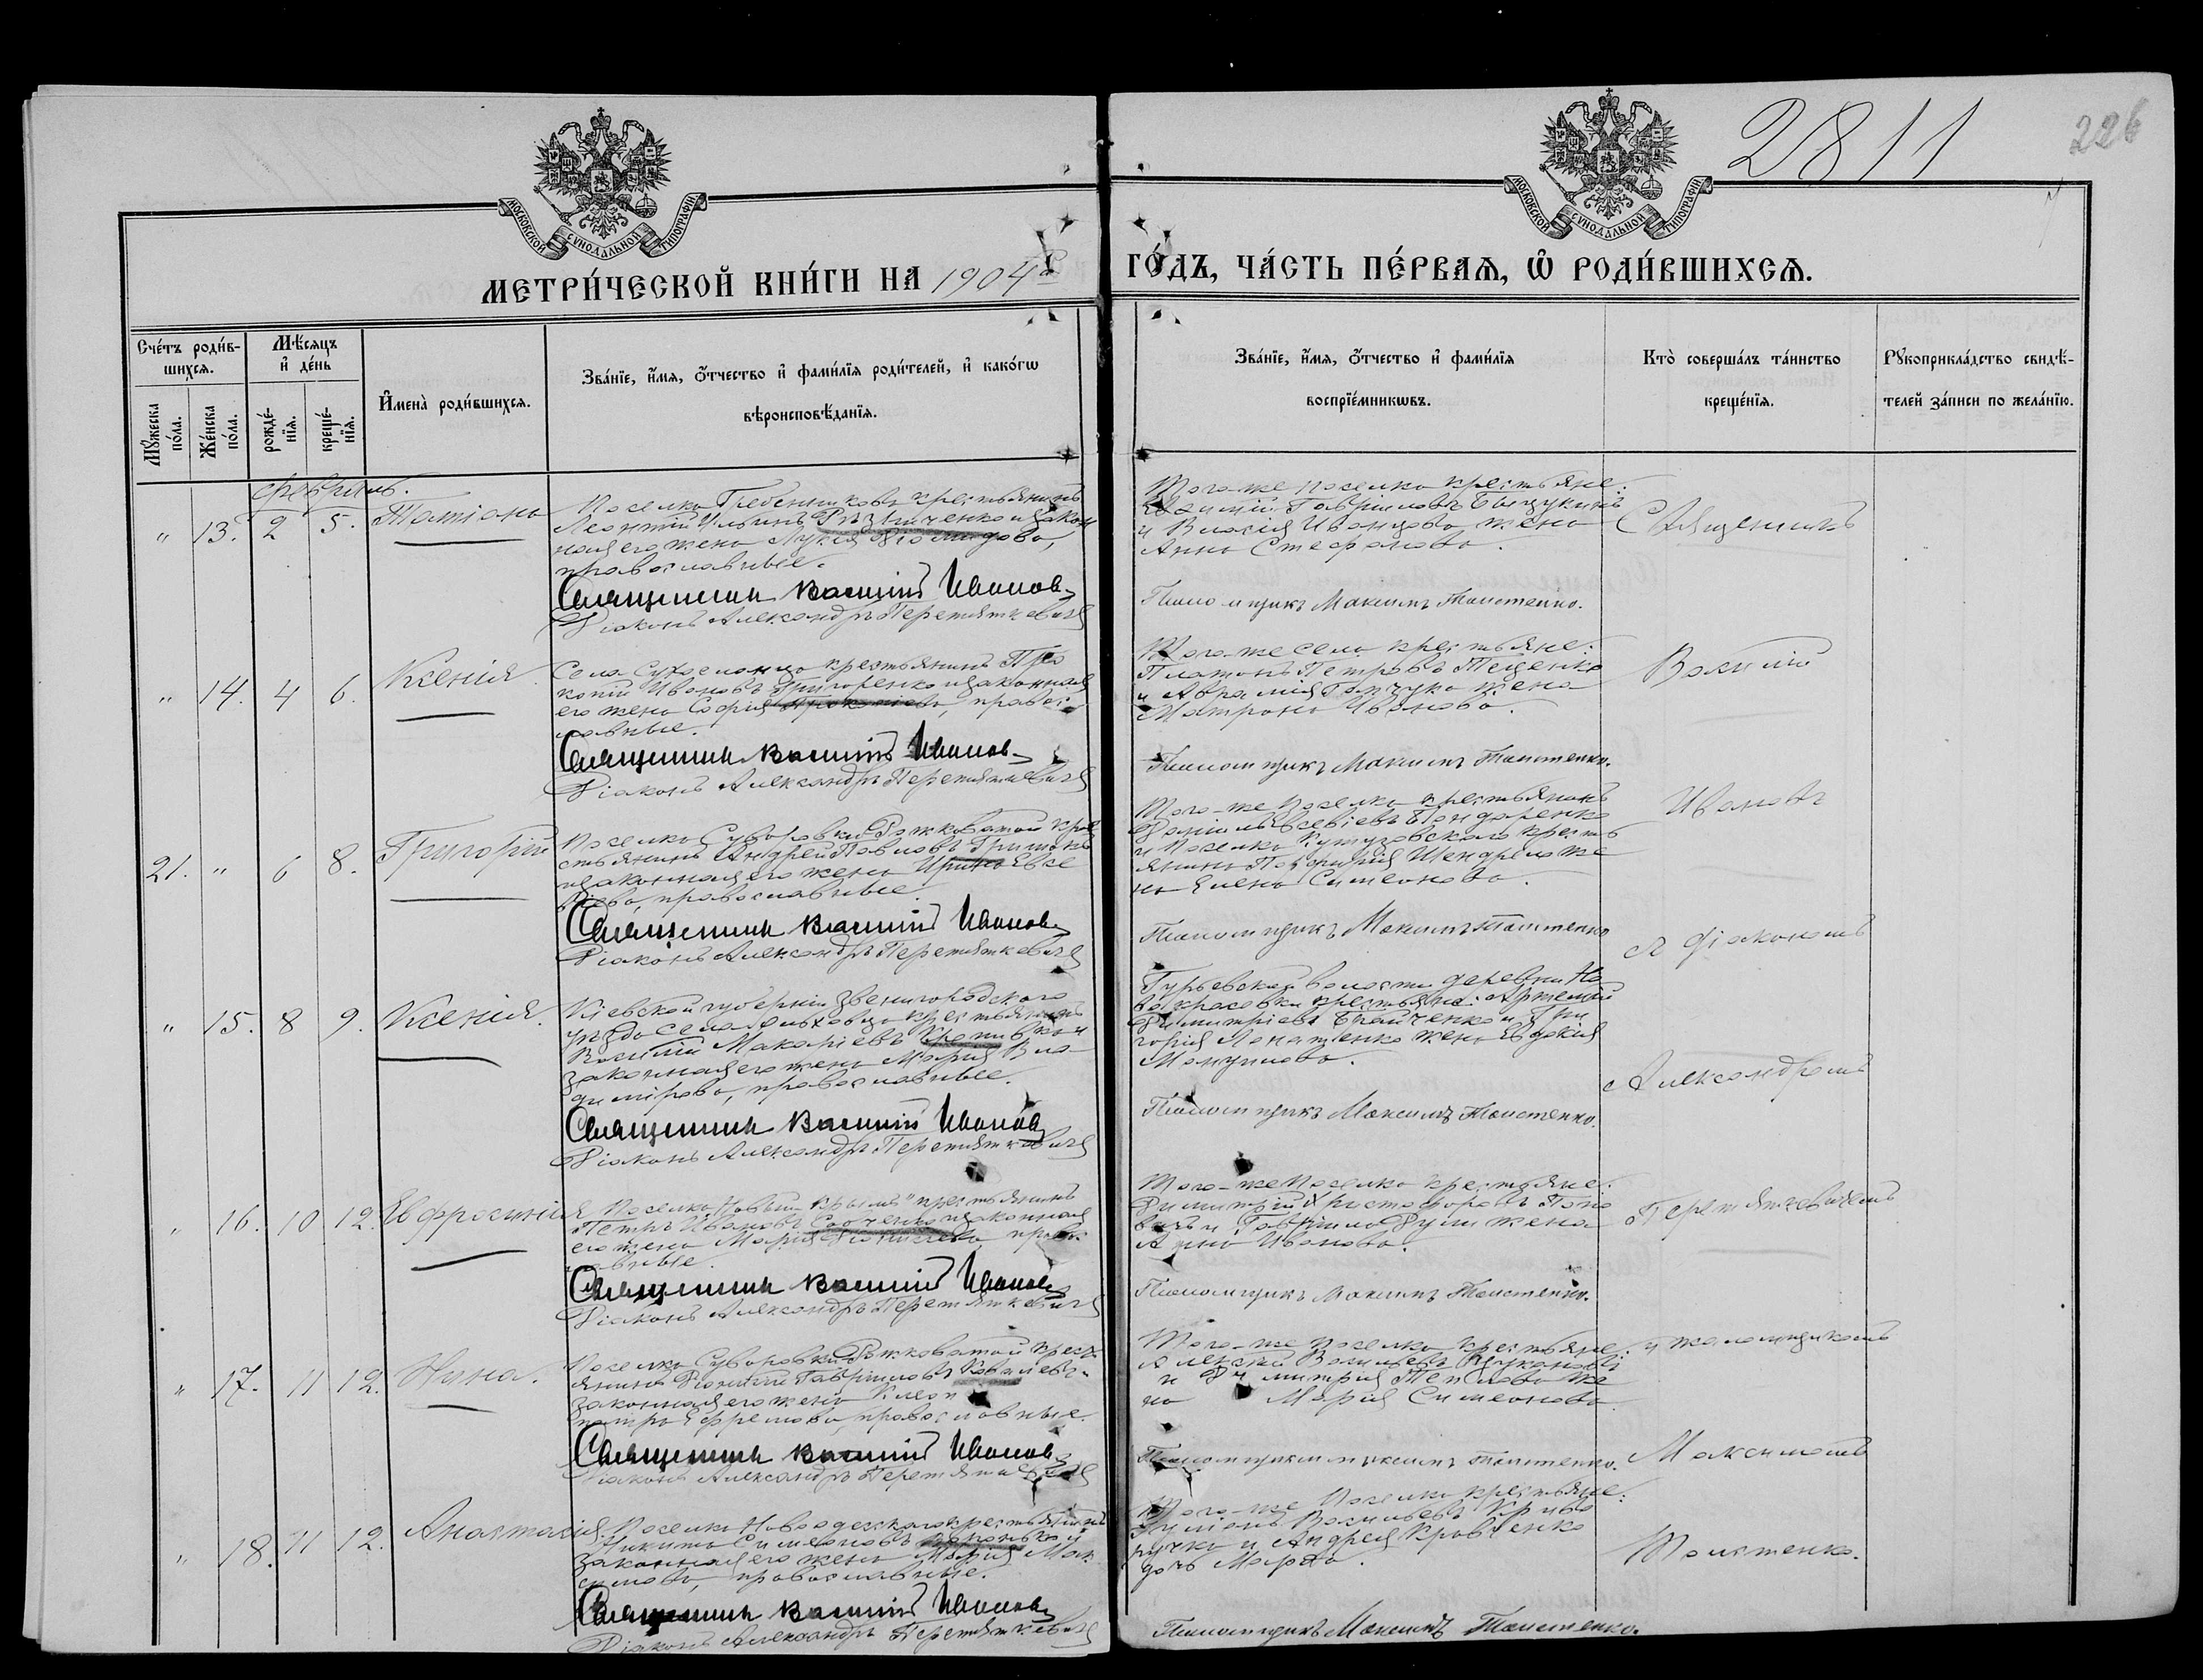 2811
226
МОСКОВСКОЙ СѴНОДАЛЬНОЙ ТИПОГРАФІИ
МОСКОВСКОЙ СѴНОДАЛЬНОЙ ТИПОГРАФІИ
МЕТРИ́ЧЕСКОЙ КНИ́ГИ НА 1904й
ГО́ДЪ, ЧА́СТЬ ПЕ́РВАЯ, Ѡ҆ РОДИ́ВШИХСЯ.
Сче́тъ роди́в-
шихся.
Мꙋ́жеска
по́ла.
Же́нска
по́ла.
Мѣ́сяцъ
и҆ де́нь
рожде́-
нїя.
креще́-
нїя.
И҆мена̀ роди́вшихся.
Зва́нїе, и҆́мя, ѻ҆́тчество и҆ фами́лїя роди́телей, и҆ како́гѡ
вѣроисповѣ́данїя.
Зва́нїе, и҆́мя, ѻ҆́тчество и҆ фами́лїя
воспрїе́мникѡвъ.
Кто̀ соверша́лъ та́инство
креще́нїя.
Рꙋкоприкла́дство свидѣ́-
телей за́писи по жела́нїю.
Февраль.
" 13. 2 5. Татіана
Поселка Гребенниковъ крестьянинъ
Леонтій Ильинъ и закон
ная его жена Лукія
православные.
Священникъ Василій Иванов
Діаконъ Александръ Перетяткевичъ
Того-же поселка крестьяне:
Гавріиловъ
и Власія Иванцова жена
Анна Стефанова.
Псаломщикъ Максимъ Толстенко.
Священникъ
" 14. 4 6. Ксенія
Села крестьянинъ Про
копій Ивановъ Григоренко и законная
его жена Софія православ-
ные.
Священникъ Василій Иванов
Діаконъ Александръ Перетяткевичъ
Того-же села крестьяне:
Платонъ Петровъ Тещенко
и жена
Матрона Иванова.
Псаломщикъ Максимъ Толстенко.
Василій
21. " 6 8. Григорій
Поселка Суворовки кре
стьянинъ Андрей Павловъ
и законная его жена Ирина Евсе
віева, православные.
Священникъ Василій Иванов
Діаконъ Александръ Перетяткевичъ
Того-же поселка крестьянинъ
Даніилъ Евсевіевъ Бондаренко
и поселка Кутузовскаго кресть
янина Порфирія же
на Елена Симеонова.
Псаломщикъ Максимъ Толстенко
Ивановъ
" 15. 8 9. Ксенія.
Кіевской губерніи Звенигородского
уѣзда села крестьянинъ
Василій Макаріевъ и
законная его жена Марія Вла
димірова, православные.
Священникъ Василій Иванов
Діаконъ Александръ Перетяткевичъ
Гурьевской волости деревни Но
крестьяне: Артемій
Димитріевъ и Гри
горія жена Евдокія
Псаломщикъ Максимъ Толстенко.
съ діакономъ
Александромъ
" 16. 10 12. Евфросинія
Поселка Новый Крымъ" крестьянинъ
Петръ Ивановъ и законная
его жена Марія правос-
лавные.
Священникъ Василій Иванов
Діаконъ Александръ Перетяткевичъ
Того-же поселка крестьяне:
Димитрій Христофоровъ Попо
вичъ и Гавріила жена
Анна Иванова.
Псаломщикъ Максимъ Толстенко.
Перетяткевичемъ
" 17. 11 12. Нина.
Поселка Суворовки крест
янинъ Гавріиловъ
законная его жена Клеоп
патра Ефремова, православные.
Священникъ Василій Иванов
Діаконъ Александръ Перетяткевичъ
Того-же поселка крестьяне:
Алексій Васильевъ
и Димитрія же
на Марія Симеонова
Псаломщикъ Максимъ Толстенко.
и псаломщикомъ
Максимомъ
" 18. 11 12. Анастасія
Поселка Новоодесскаго крестьянинъ
Никита Симеоновъ и
законная его жена Марія Мак
симова, православные.
Священникъ Василій Иванов
Діаконъ Александръ Перетяткевичъ
Того-же поселка крестьяне:
Васильевъ Криво
ручко и Андрея Кравченко
дочь Марѳа.
Псаломщикъ Максимъ Толстенко.
Толстенко.